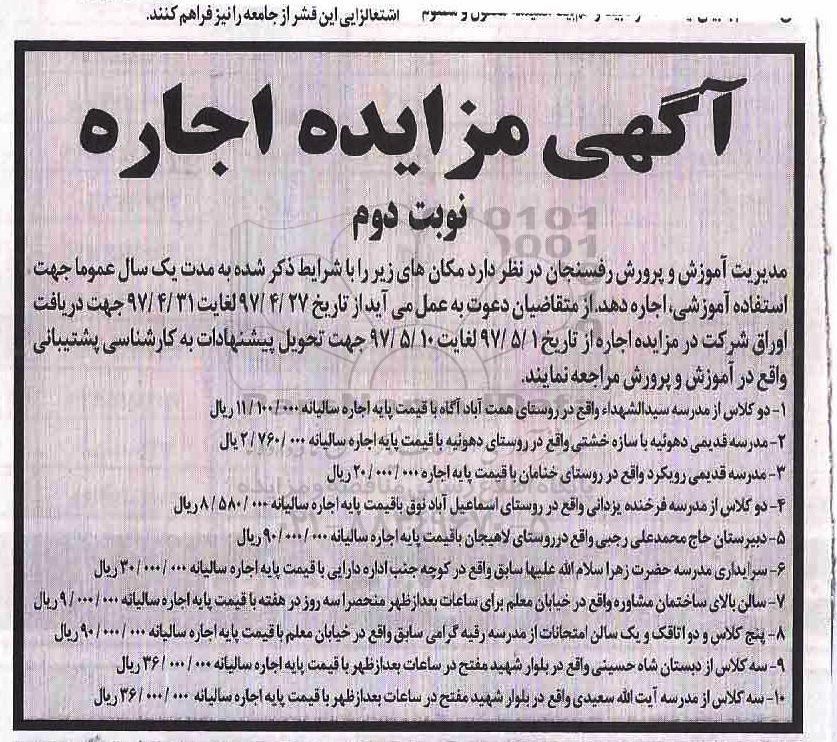 اشتغالزایی این قشر از جامعه را نیز فراهم کنند.
آگهی مزایده اجاره
نوبت دوم
مدیریت آموزش و پرورش رفسنجان در نظر دارد مکان های زیر را با شرایط ذکر شده به مدت یک سال عموما جهت
استفاده آموزشی، اجاره دهد. از متقاضیان دعوت به عمل می آید از تاریخ ۹۷/۴/۲۷ لغایت ۹۷/۴/۳۱ جهت دریافت
اوراق شرکت در مزایده اجاره از تاریخ ۹۷/۵/۱ لغایت ۹۷/۵/۱۰ جهت تحویل پیشنهادات به کارشناسی پشتیبانی
واقع در آموزش و پرورش مراجعه نمایند.
۱- دو کلاس از مدرسه سیدالشهداء واقع در روستای همت آباد آگاه با قیمت پایه اجاره سالیانه ۱۱/۱۰۰/۰۰۰ ریال
۲- مدرسه قدیمی دهوئیه با سازه خشتی واقع در روستای دهوئیه با قیمت پایه اجاره سالیانه ۲/۷۶۰/۰۰۰ یال
۳- مدرسه قدیمی رویکرد واقع در روستای خنامان با قیمت پایه اجاره ۲۰/۰۰۰/۰۰۰ ریال
۴- دو کلاس از مدرسه فرخنده یزدانی واقع در روستای اسماعیل آباد نوق باقیمت پایه اجاره سالیانه ۸/۵۸۰/۰۰۰ ریال
۵- دبیرستان حاج محمدعلی رجبی واقع درروستای لاهیجان باقیمت پایه اجاره سالیانه ۹۰/۰۰۰/۰۰۰ ریال
۶- سرایداری مدرسه حضرت زهرا سلام الله علیها سابق واقع در کوچه جنب اداره دارایی با قیمت پایه اجاره سالیانه ۳۰/۰۰۰/۰۰۰ ریال
۷- سالن بالای ساختمان مشاوره واقع در خیابان معلم برای ساعات بعدازظهر منحصرا سه روز در هفته با قیمت پایه اجاره سالیانه ۹/۰۰۰/۰۰۰ ریال
۸- پنج کلاس و دو اتاقک و یک سالن امتحانات از مدرسه رقیه گرامی سابق واقع در خیابان معلم با قیمت پایه اجاره سالیانه ۹۰/۰۰۰/۰۰۰ ریال
۹- سه کلاس از دبستان شاه حسینی واقع در بلوار شهید مفتح در ساعات بعدازظهر با قیمت پایه اجاره سالیانه ۳۶/۰۰۰/۰۰۰ ریال
۱۰- سه کلاس از مدرسه آیت الله سعیدی واقع در بلوار شهید مفتح در ساعات بعدازظهر با قیمت پایه اجاره سالیانه ۳۶/۰۰۰/۰۰۰ ریال